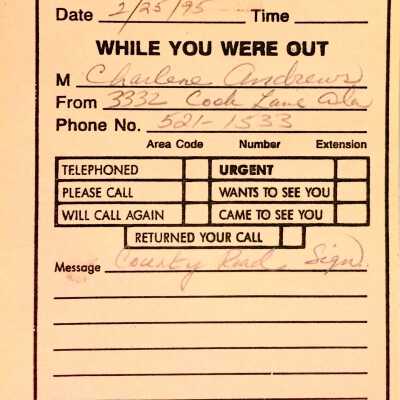 Date 2/25/95 Time
WHILE YOU WERE OUT
M Charlene Andrews
From 3332 Cook Lane
Phone No. 521-1533
Area Code Number Extension
TELEPHONED URGENT
PLEASE CALL WANTS TO SEE YOU
WILL CALL AGAIN CAME TO SEE YOU
RETURNED YOUR CALL
Message County Road, Sign